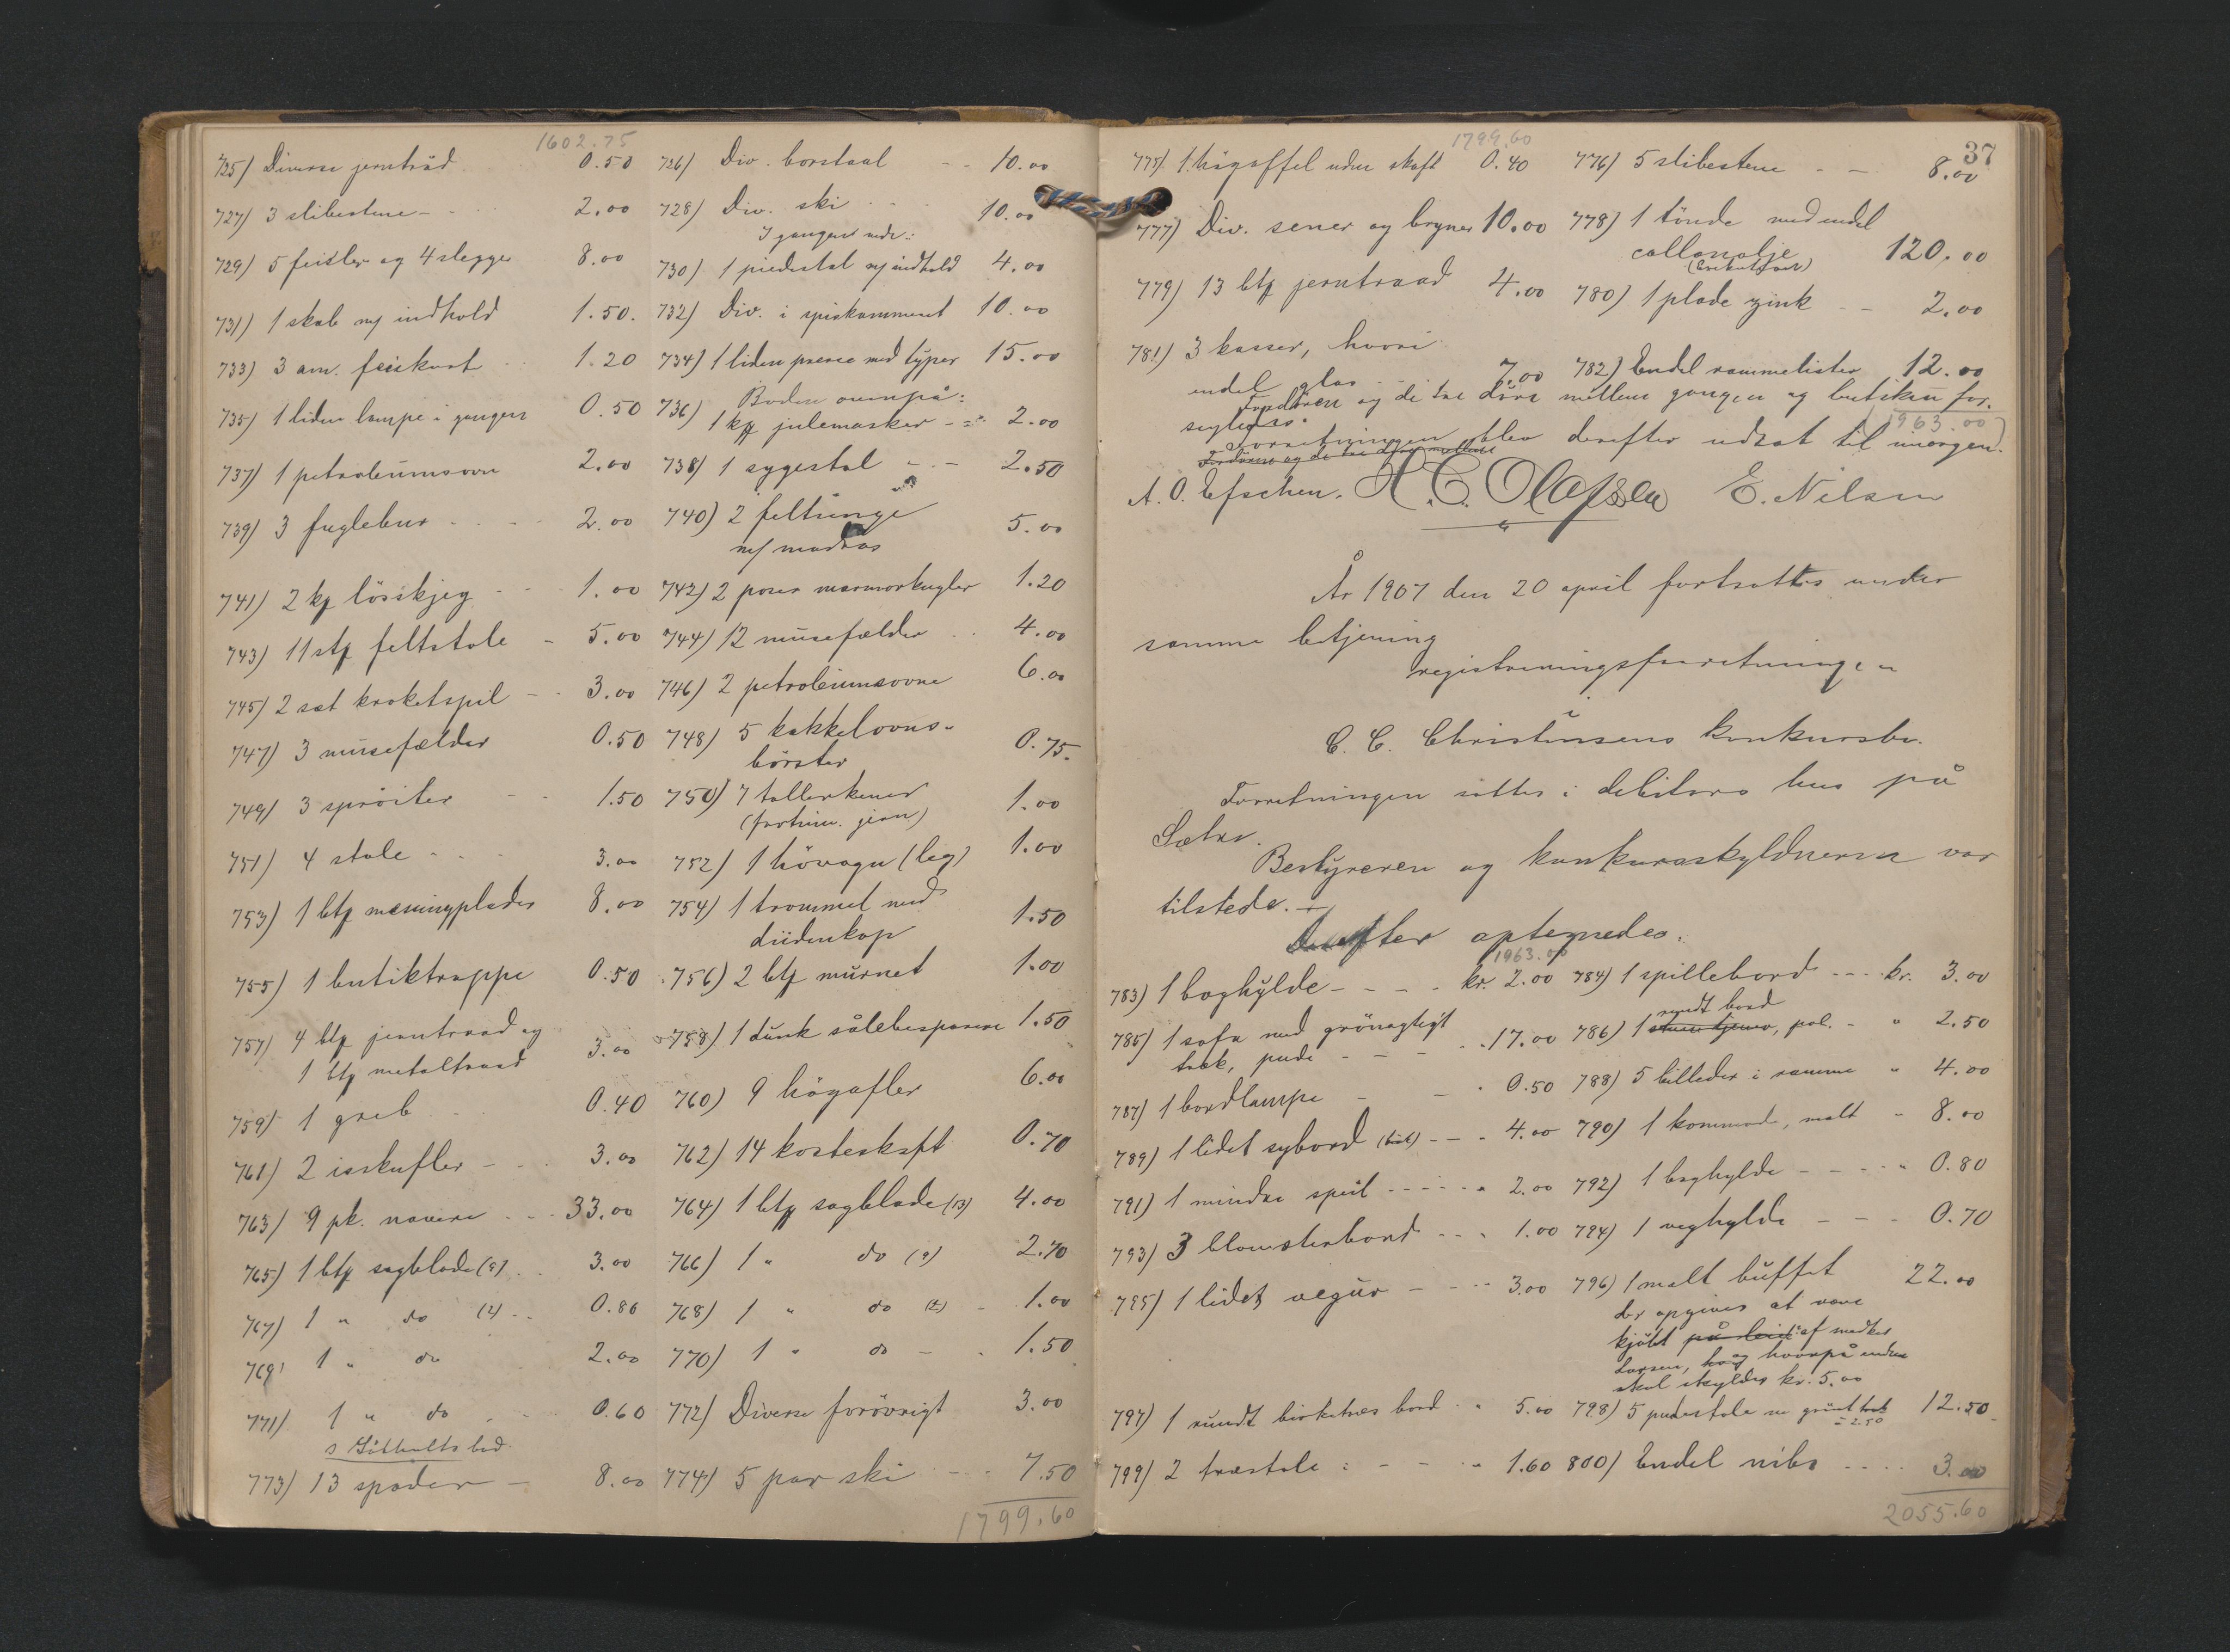 1602.75
725) Diverse jerntråd 0.50 726) Div. borstaal - - 10.00
727) 3 slibestene - - 2.00 728) Div. ski - - 10.00
I gangen nede:
729) 5 feisler og 4 slegger 8.00 730) 1 piedestal m/ indhold 4.00
731) 1 skab m/ indhold 1.50. 732) Div. i spiskammeret 10.00
733) 3 am. feiekost 1.20 734) 1 liden presse med typer 15.00
Boden ovenpå:
735) 1 liden lampe i gangen 0.50 736) 1 kg julemasker - - 2.00
737) 1 petroleumsovn 2.00 738) 1 sygestol - - 2.50
739) 3 fuglebur - - - 2.00 740) 2 feltsenge
m/ madras 5.00
741) 2 kg löskjeg - - 1.00 742) 2 poser marmorkugler 1.20
743) 11 stk feltstole - 5.00 744) 12 musefælder - - 4.00
745) 2 sæt kroketspil - - 3.00 746) 2 petroleumsovne 6.00
747) 3 musefælder 0.50 748) 5 kakkelovns-
börster 0.75.
749) 3 spröiter - - 1.50 750) 7 tallerkener
(fortin. jern) 1.00
751) 4 stole - - 3.00 752) 1 hövogn (leg) 1.00
753) 1 btg messingplader 8.00 754) 1 trommel med
1.50
755) 1 butiktrappe 0.50 756) 2 btg murnet 1.00
757) 4 btg jerntraad og
1 btg metaltraad 3.00 758) 1 dunk sålebesparere 1.50
759) 1 greb - 0.40 760) 9 högafler 6.00
761) 2 isskufler - - 3.00 762) 14 kosteskaft 0.70
763) 9 pk. navere - - - 33.00 764) 1 btg sagblade (13) 4.00
765) 1 btg sagblade (9) - - 3.00 766) 1 " do (9) 2.70
767) 1 " do (4) - - 0.80 768) 1 " do (2) - 1.00
769) 1 " do 2.00 770) 1 " do - - 1.50
771) 1 " do - - 0.60 772) Diverse forövrigt 3.00
773) 13 spader - 8.00 774) 5 par ski - - - 7.50
1799.60
37
1799.60
775) 1 högaffel uden skaft 0.40 776) 5 slibestene - - 8.00
777) Div. sener og bryner 10.00 778) 1 tönde med endel
120.00
779) 13 btg jerntraad 4.00 780) 1 plade zink - - 2.00
781) 3 kasser, hvori
endel glas - - 7.00 782) Endel rammelister 12.00
Fordören og de tre döre mellem gangen og butiken for-
segledes. 1963.00
Forretningen blev derefter udsat til imorgen.
Fordören og de tre döre mellem
A. O. Efschen. H. C. Olafssen E. Nilsen
År 1907 den 20 april fortsattes under
samme betjening
registreringsforretningen
i
C. C. Christensens konkursbo.
Forretningen sattes i debitors hus på
Sætre.
Bestyreren og konkursskyldneren var
tilstede. -
Derefter optegnedes:
1963.00
783) 1 boghylde - - - - kr. 2.00 784) 1 spillebord - - - kr. 3.00
rundt bord
785) 1 sofa med grönagtigt
træk, pude - - - - 17.00 786) 1 , pol. - " 2.50
787) 1 bordlampe - - " 0.50 788) 5 billeder i ramme " 4.00
789) 1 lidet sybord - - - 4.00 790) 1 kommode, malt - 8.00
791) 1 mindre speil - - - - - " 2.00 792) 1 boghylde - - - - " 0.80
793) 3 blomsterbord - - - 1.00 794) 1 veghylde - - - 0.70
795) 1 lidet vegur - - - - 3.00 796) 1 malt buffet 22.00
der opgives at være
kjöbt på af snedker
Larsen, og hvorpå endnu
skal skyldes kr. 5.00
797) 1 rundt birketræs bord - " 5.00 798) 5 pudestole m grönt træk 12.50
à 2.50
799) 2 træstole : - - - " 1.60 800) Endel nips - - - - 3.00
2055.60